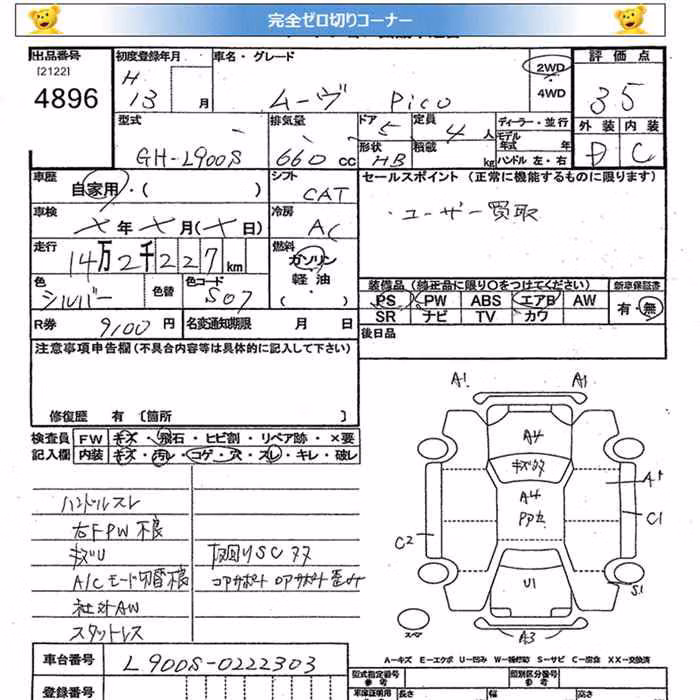 完全ゼロ切りコーナー
出品番号 初度登録年月 車名・グレード 2WD 評価点
[2122] H
4896 13 月 ムーヴ Pico 4WD 35
型式 排気量 ドア 5 定員 4 人 ディーラー・並行 外装 内装
モデル年式 年
GH-L900S 660 cc 形状 HB 積載 kg ハンドル 左・右 D C
車歴 自家用・( ) シフト CAT セールスポイント (正常に機能するものに限ります)
車検 年 月( 日) 冷房 AC ・ユーザー買取
走行 14万2千227km 燃料 ガソリン
軽油
・( )
色 シルバー 色替 色コード S07 装備品(純正品に限り○をつけてください) 新車保証書
PS PW ABS エアB AW 有・無
SR ナビ TV カワ
R券 9100 円 名変通知期限 月 日 後日品
注意事項申告欄(不具合内容等は具体的に記入して下さい)
修復歴 有〔箇所 〕
検査員 FW キズ・飛石・ヒビ割・リペア跡・×要
記入欄 内装 キズ・汚レ・コゲ・穴・スレ・キレ・破レ
ハンドルスレ
右FPW不良
キズU
A/Cモード切替不良 コアサポート
社外AW
スタットレス
A1 A1
A4
A4
A1
C2 C1
U1
S1
スペア
A3
A-キズ E-エクボ U-凹み W-補修跡 S-サビ C-腐食 XX-交換済
車台番号 L900S-0222303
登録番号
型式指定番号 参考 類別区分番号 参考
車庫証明用 長さ 幅 高さ